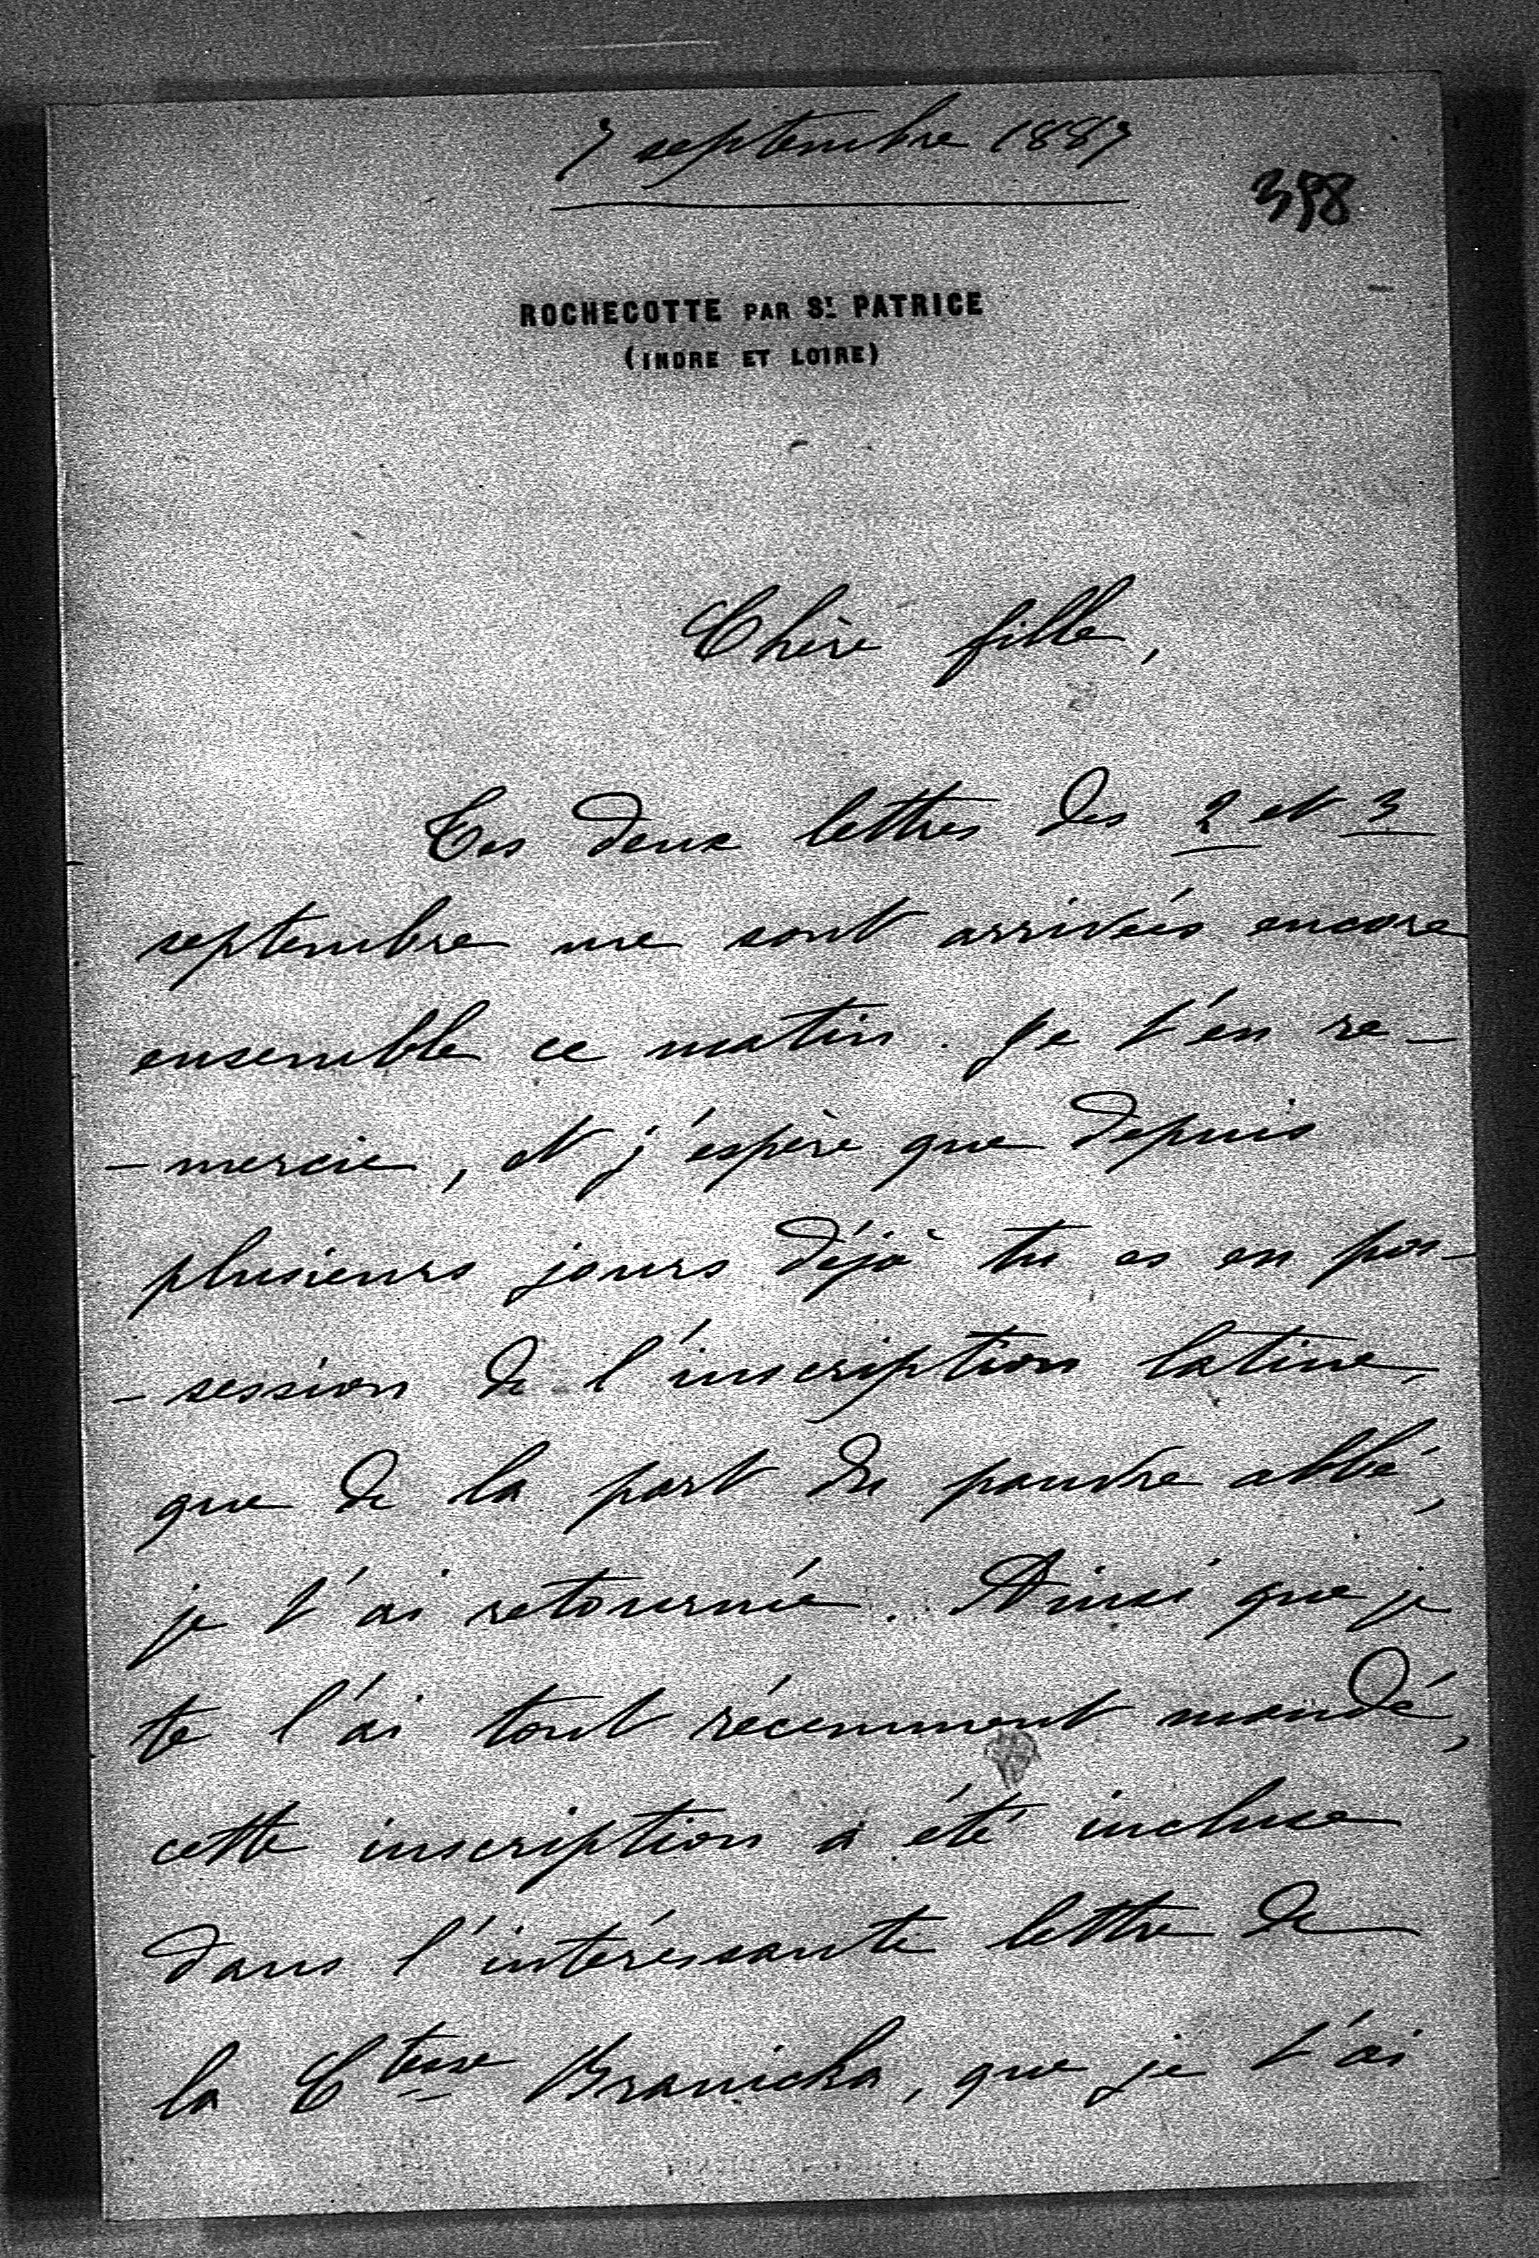 7 septembre 1887
398
ROCHECOTTE PAR St PATRICE
(INDRE ET LOIRE)
Chère fille,
Tes deux lettres des 2 et 3
septembre me sont arrivées encore
ensemble ce matin. Je t'en re-
-mercie, et j'espère que depuis
plusieurs jours déjà tu es en pos-
-session de l'inscription latine,
que de la part du pauvre abbé,
je t'ai retournée. Ainsi que je
te l'ai tout récemment mandé,
cette inscription a été incluse
dans l'intéressante lettre de
la Ctesse Branicka, que je t'ai